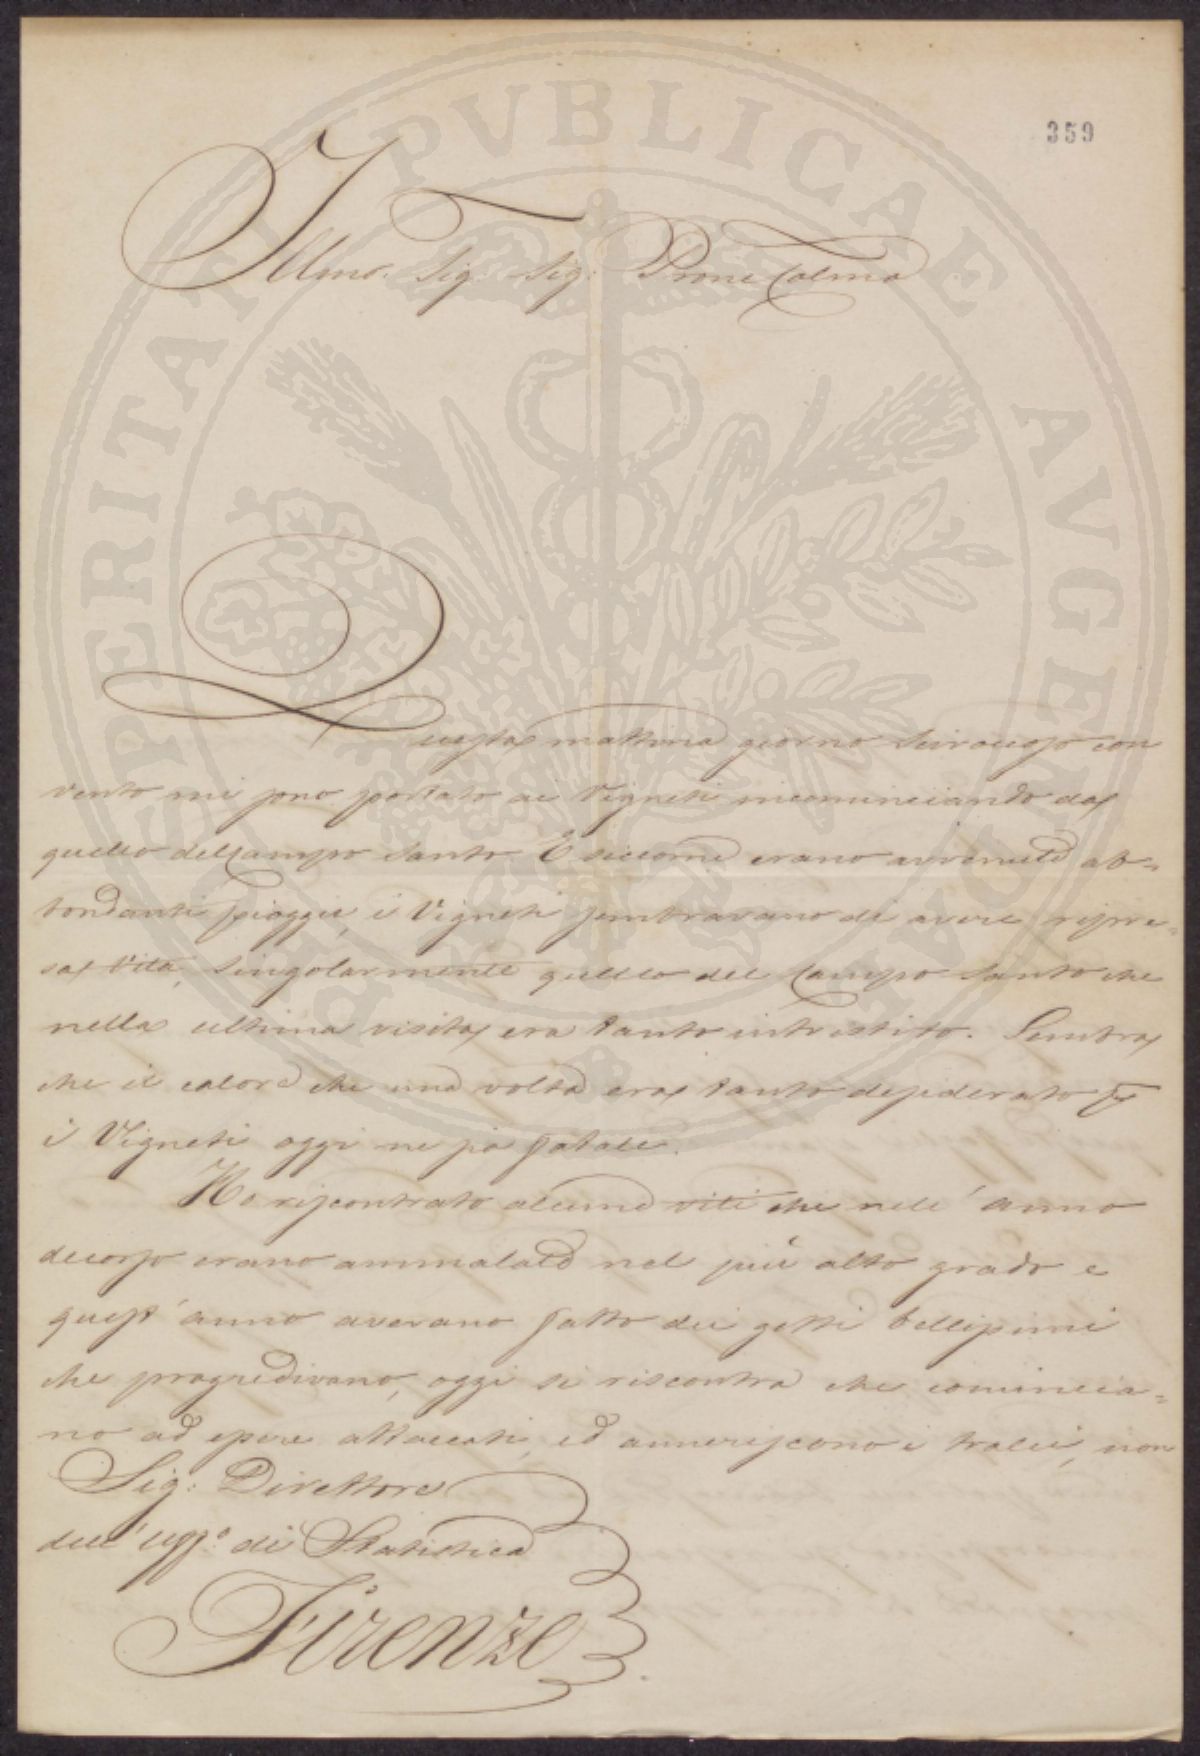 359
Illmo. Sig. Sig. Prone Colmo
Questa mattina giorno con
vento mi sono portato ai Vigneti incominciando da
quello del Campo Santo. E siccome erano avvenute ab=
bondanti pioggie, i Vigneti sembravano di avere ripre=
sa vita, singolarmente quello del Campo Santo che
nella ultima visita era tanto intristito. Sembra
che il calore che una volta era tanto desiderato p
i Vigneti oggi ne sia fatale.
Ho riscontrato alcune viti che nell'anno
decorso erano ammalate nel più alto grado e
quest'anno avevano fatto dei getti bellissimi
che progredivano, oggi si riscontra che comincia=
no ad essere attaccati, ed anneriscono i tralci, non
Sig: Direttore
dell'Uffo. di Statistica
Firenze
PERITATI PVBLICAE AVGENDAE